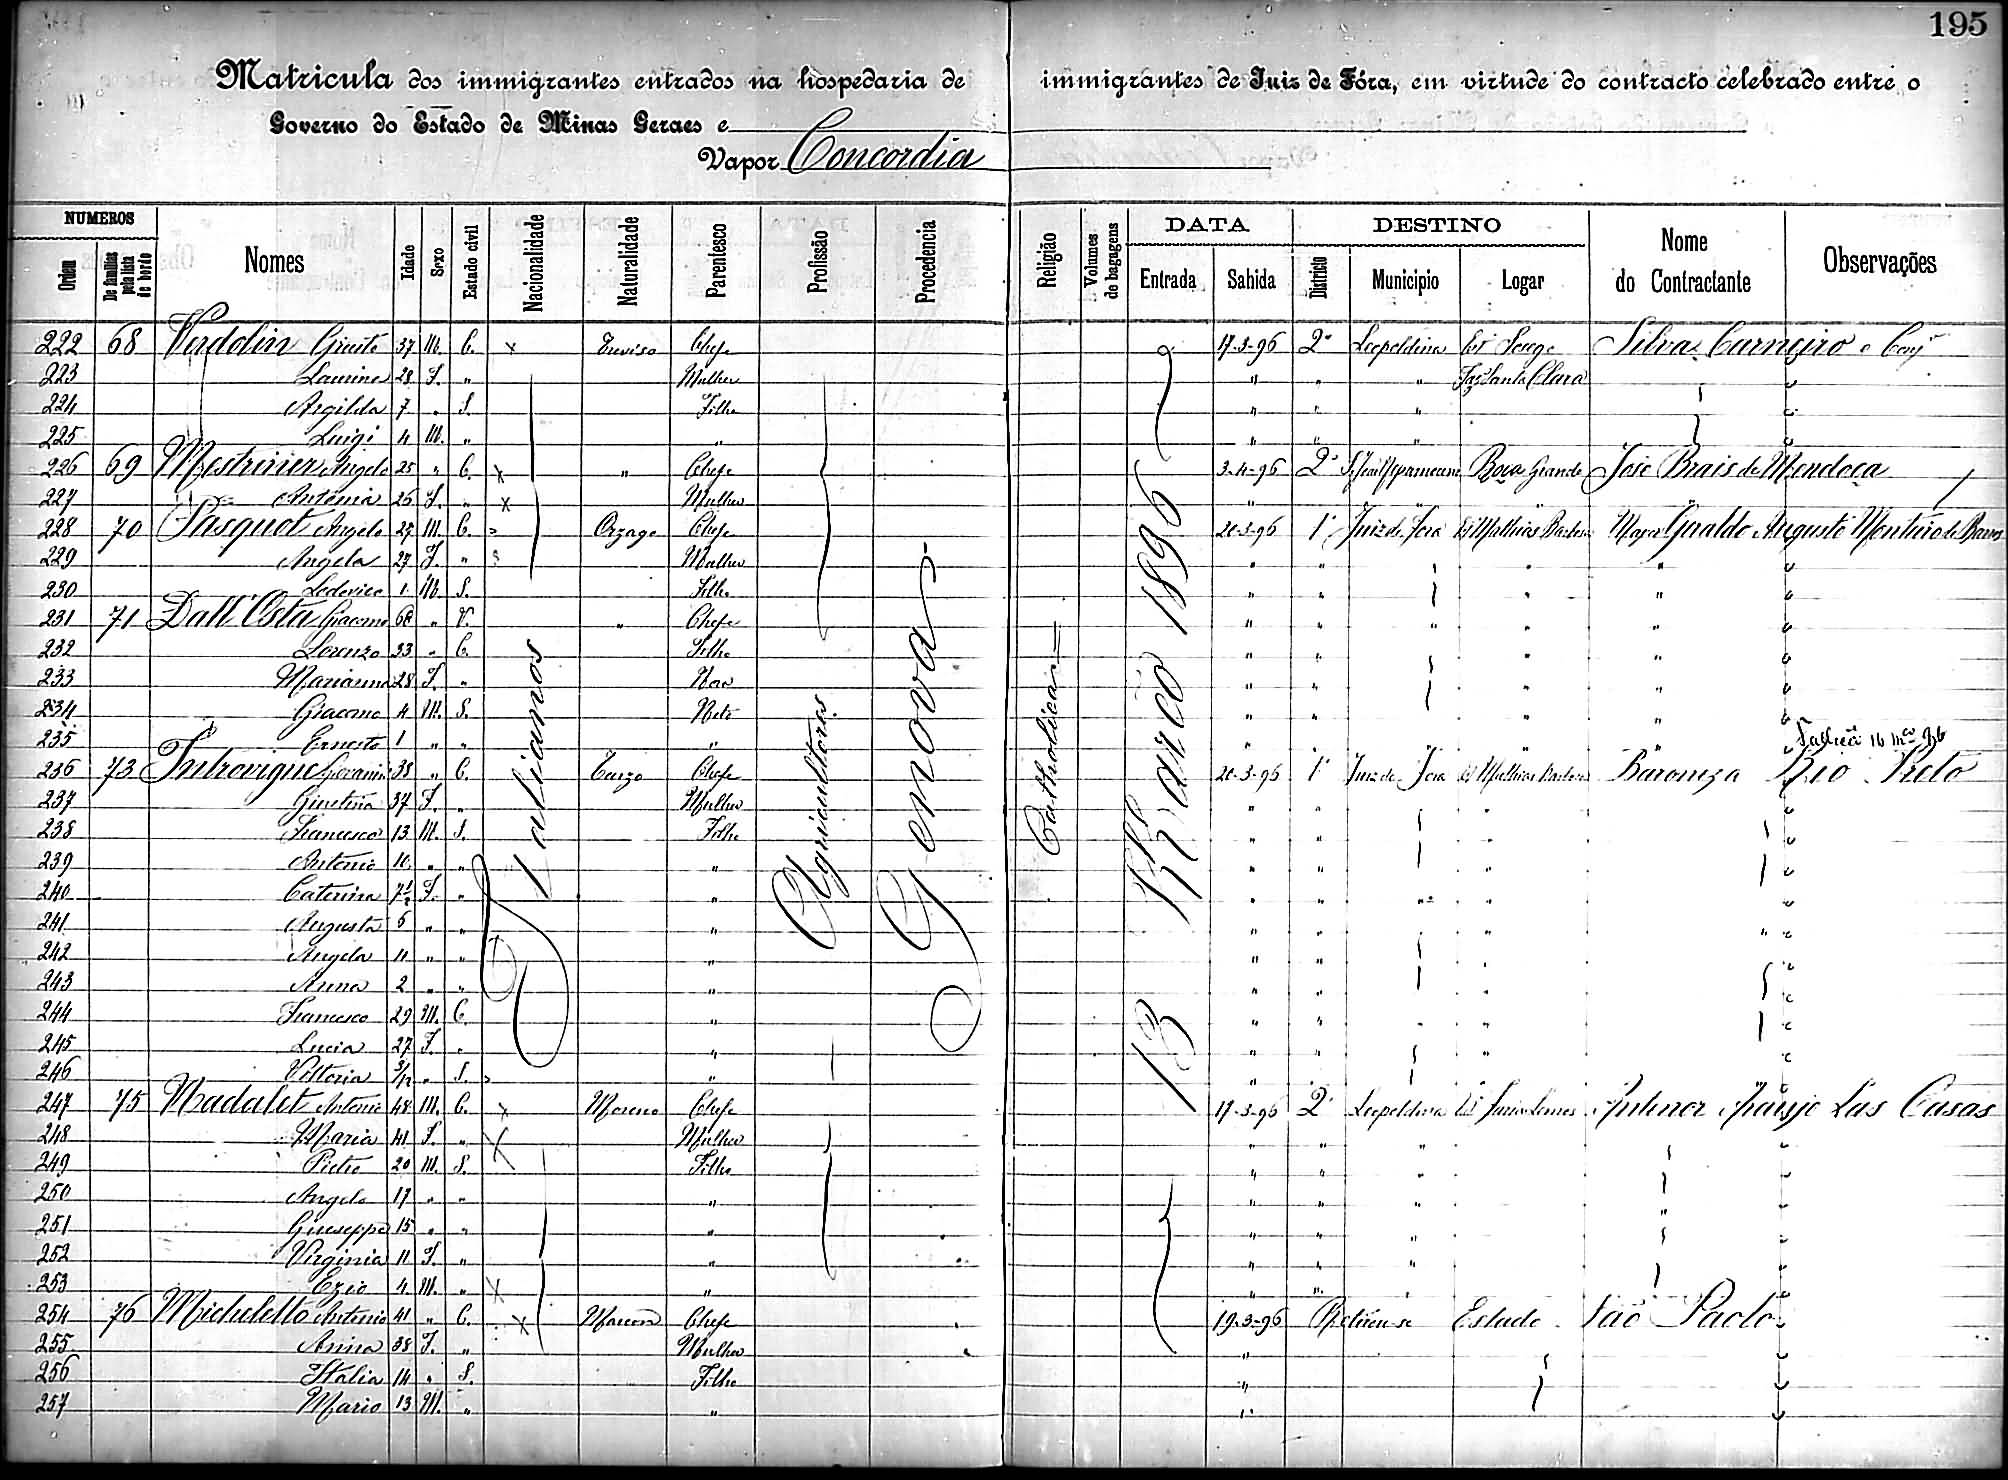 195
Matricula dos immigrantes entrados na hospedaria de immigrantes de Juiz de Fóra, em virtude do contracto celebrado entre o
Governo do Estado de Minas Geraes e
Vapor Concordia
NUMEROS DATA DESTINO
Ordem De familias pela lista de bordo Nomes Idade Sexo Estado civil Nacionalidade Naturalidade Parentesco Profissão Procedencia Religião Volumes de bagagens Entrada Sahida Districto Municipio Logar Nome do Contractante Observações
Italianos Agricultores Genova Catholica 13 Março 1896
222 68 37 M. C. x Treviso Chefe 17-3-96 2º Leopoldina Silva Carneiro e
223 28 F. " Mulher " " " Faz Santa Clara
224 Argilda 7 " S. Filho " " "
225 Luigi 4 M. " " " " "
226 69 Angelo 25 " C. x " Chefe 3-4-96 2º Grande José Brais de Mendoça
227 Antonia 26 F. " x Mulher "
228 70 Pasquot Angelo 27 M. C. Orzago Chefe 20-3-96 1º Juiz de Fora Mathias Barbosa Geraldo Augusto Monteiro de Barros
229 Angela 27 F. " Mulher " " " "
230 Lodovico 1 M. S. Filho " " " "
231 71 Dall'Osta Giacomo " V. " Chefe " " " " "
232 Lorenzo 33 " C. Filho " " " "
233 Marianna 28 F. " Nora " " " "
234 Giacomo 4 M. S. Neto " " " "
235 Ernesto 1 " " " " " " "
236 73 Introvigne Giovanni 38 " C. Chefe 20-3-96 1º Juiz de Fora Mathias Barbosa Baroneza Rio Preto
237 37 F. " Mulher " " "
238 Francesco 13 M. S. Filho " " "
239 Antonio 10 " " " " " "
240 Caterina F. " " " " " "
241 Augusta 6 " " " " " " " "
242 Angela 4 " " " " " "
243 Anna 2 " " " " " "
244 Francesco 29 M. C. " " " "
245 Lucia 27 F. " " " " "
246 Vittoria 3/12 " S. " "
247 75 Madalet Antonio 48 M. C. x Moreno Chefe 17-3-96 2º Leopoldina Antenor Araujo Las Casas
248 Maria 41 F. " x Mulher " " "
249 Pietro 20 M. S. Filho " " "
250 Angelo 17 " " " " " "
251 Giuseppe 15 " " " " " " "
252 Virginia 11 F. " " " " "
253 Ezio 4 M. " x " " "
254 76 Micheletto Antonio 41 " C. x Chefe 19-3-96 Retirou-se Estado São Paolo
255 Anna 38 F. " Mulher "
256 Italia 14 " S. Filho "
257 Mario 13 M. " " "